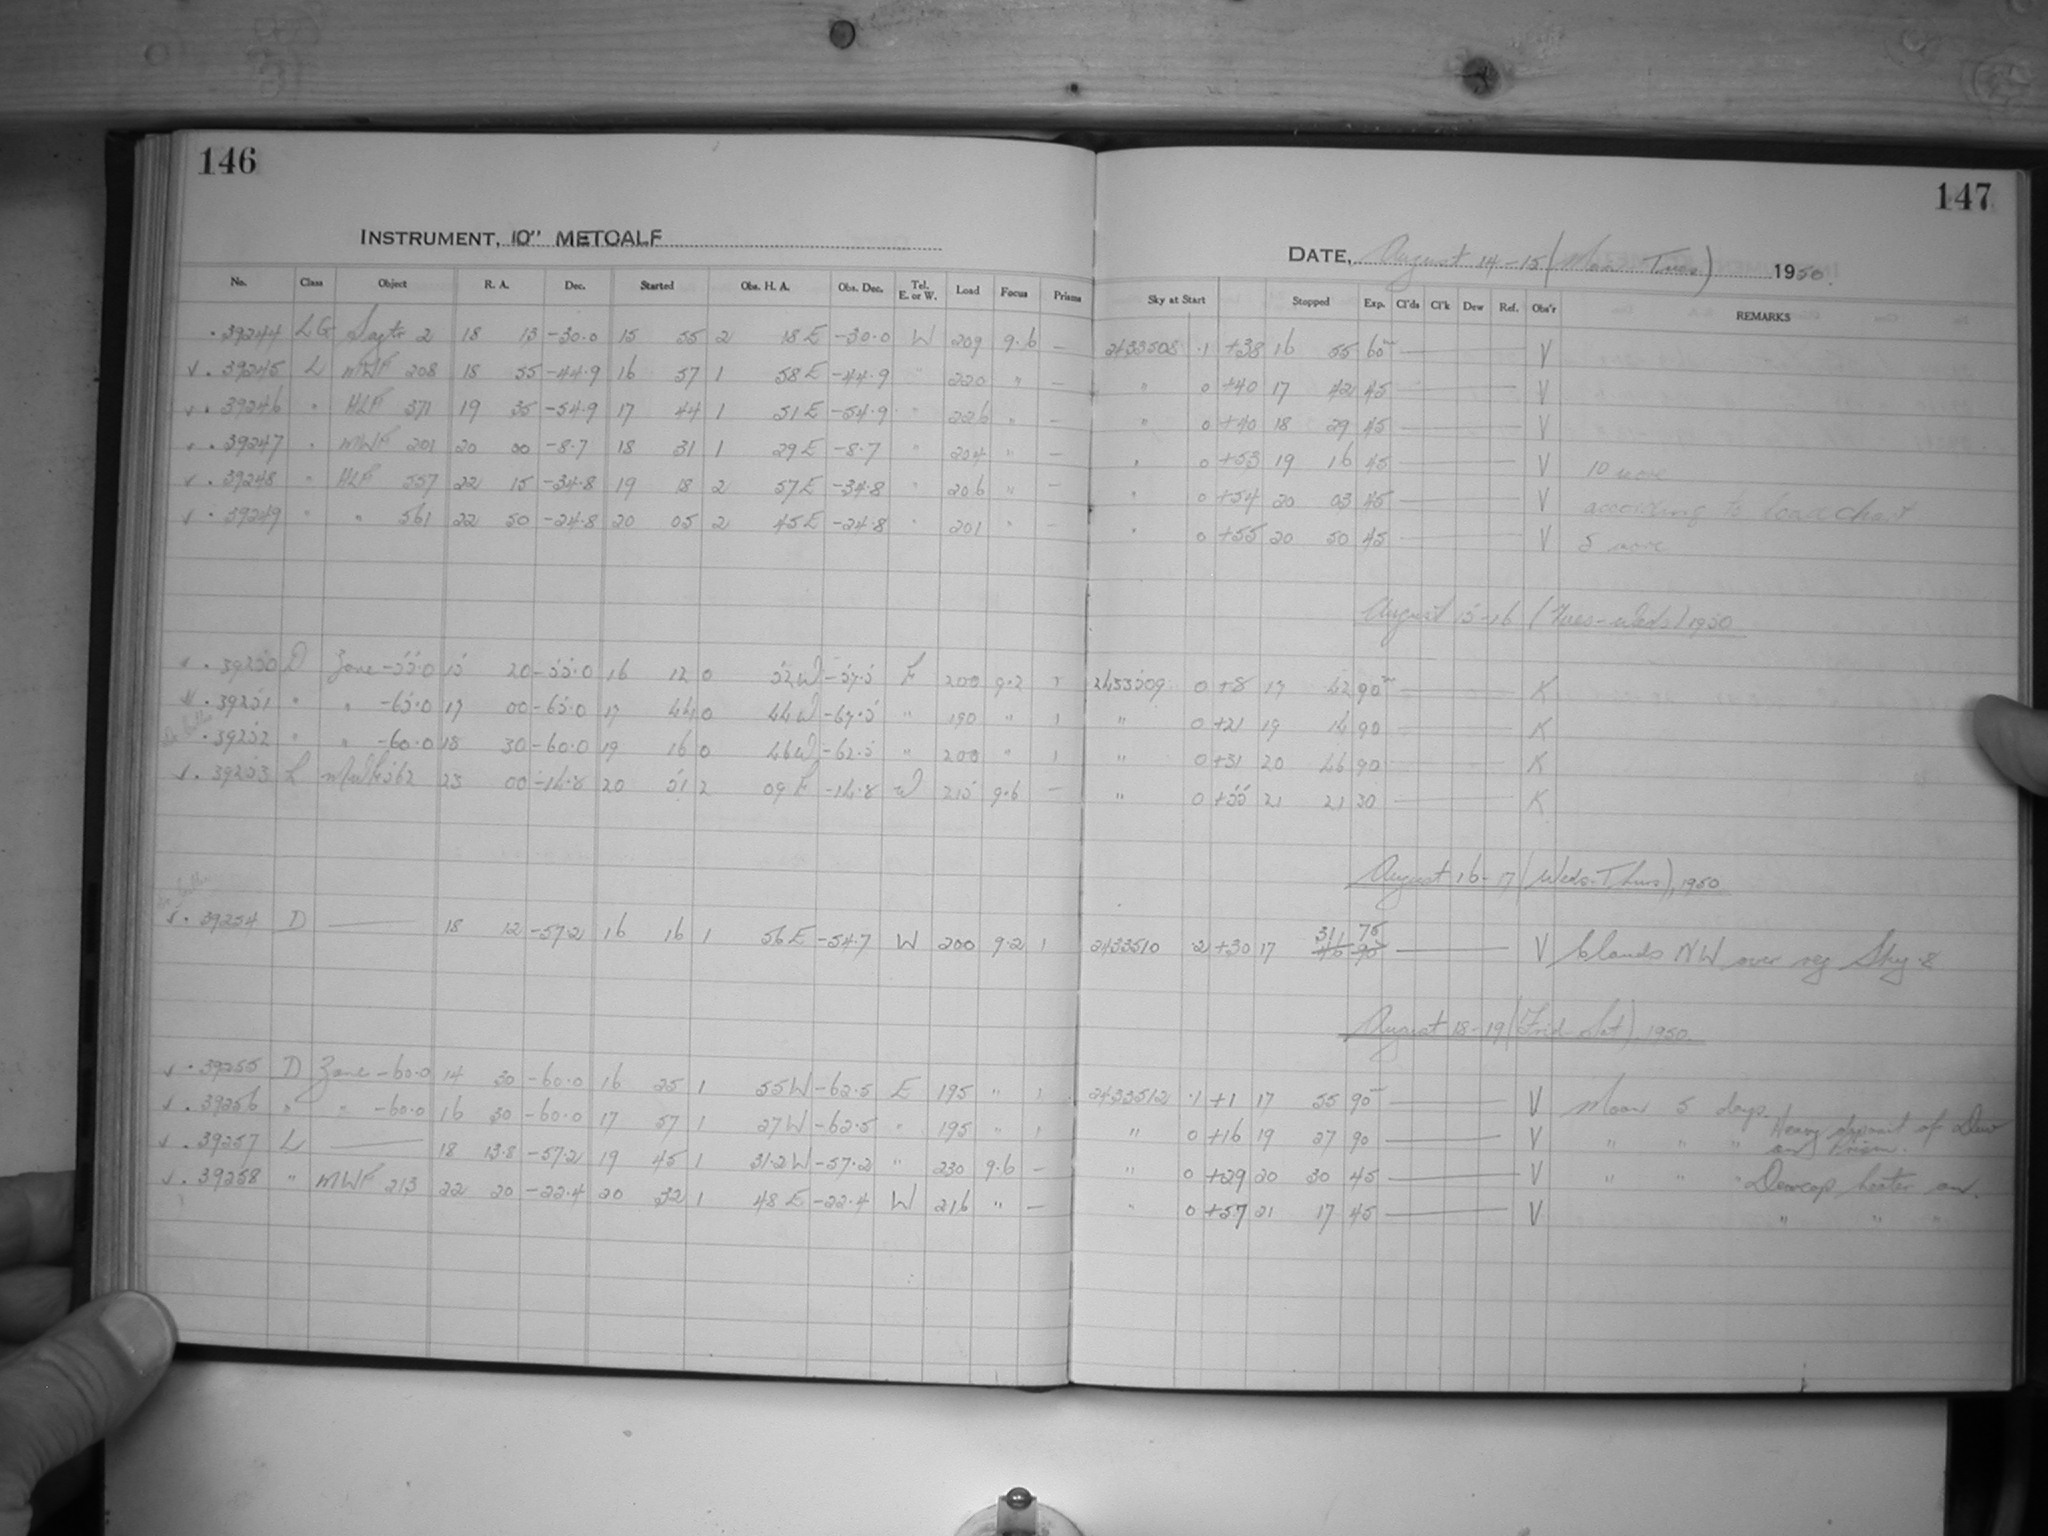 146
INSTRUMENT, 10" METCALF
No. Class Object R. A. Dec. Started Obs. H. A. Obs. Dec. Tel. E. or W. Load Focus Prisms
.39244 LG Sagtr 2 18 13 -30.0 15 55 2 18 E -30.0 W 209 9.6 —
v .39245 L MWF 208 18 55 -44.9 16 57 1 58 E -44.9 " 220 " —
v .39246 " HLF 371 19 35 -54.9 17 44 1 51 E -54.9 " 226 " —
v .39247 " MWF 201 20 00 -8.7 18 31 1 29 E -8.7 " 204 " —
v .39248 " HLF 557 22 15 -34.8 19 18 2 57 E -34.8 " 206 " —
v .39249 " " 561 22 50 -24.8 20 05 2 45 E -24.8 " 201 " —
v .39250 D Zone -55.0 15 20 -55.0 16 12 0 52 W -57.5 E 200 9.2 1
.39251 " " -65.0 17 00 -65.0 17 44 0 44 W -67.5 " 190 " 1
.39252 " " -60.0 18 30 -60.0 19 16 0 46 W -62.5 " 200 " 1
v .39253 L MWF 562 23 00 -14.8 20 51 2 09 E -14.8 W 215 9.6 —
v .39254 D — 18 12 -57.2 16 16 1 56 E -54.7 W 200 9.2 1
v .39255 D Zone -60.0 14 30 -60.0 16 25 1 55 W -62.5 E 195 " 1
v .39256 " " -60.0 16 30 -60.0 17 57 1 27 W -62.5 " 195 " 1
v .39257 L — 18 13.8 -57.2 19 45 1 31.2 W -57.2 " 230 9.6 —
v .39258 " MWF 213 22 20 -22.4 20 32 1 48 E -22.4 W 216 " —
147
DATE, August 14-15 (Mon Tues) 1950.
Sky at Start Stopped Exp. Cl'ds Cl'k Dew Ref. Obs'r REMARKS
2433508 .1 +38 16 55 60 — V
" 0 +40 17 42 45 — V
" 0 +40 18 29 45 — V
" 0 +53 19 16 45 — V 10 more
" 0 +54 20 03 45 — V according to load chart
" 0 +55 20 50 45 — V 5 more
August 15-16 (Tues-Weds) 1950
2433509 0 +8 17 42 90 — K
" 0 +21 19 14 90 — K
" 0 +31 20 46 90 — K
" 0 +55 21 21 30 — K
August 16-17 (Weds-Thurs), 1950
31 75
2433510 .2 +30 17 46 90 — V Clouds NW over reg Sky .8
August 18-19 (Frid-Sat) 1950.
2433512 .1 +1 17 55 90 — V Moon 5 days.
" 0 +16 19 27 90 — V " " " Heavy deposit of Dew
on Prism.
" 0 +29 20 30 45 — V " " " Dewcap heater on.
" 0 +57 21 17 45 — V " " "